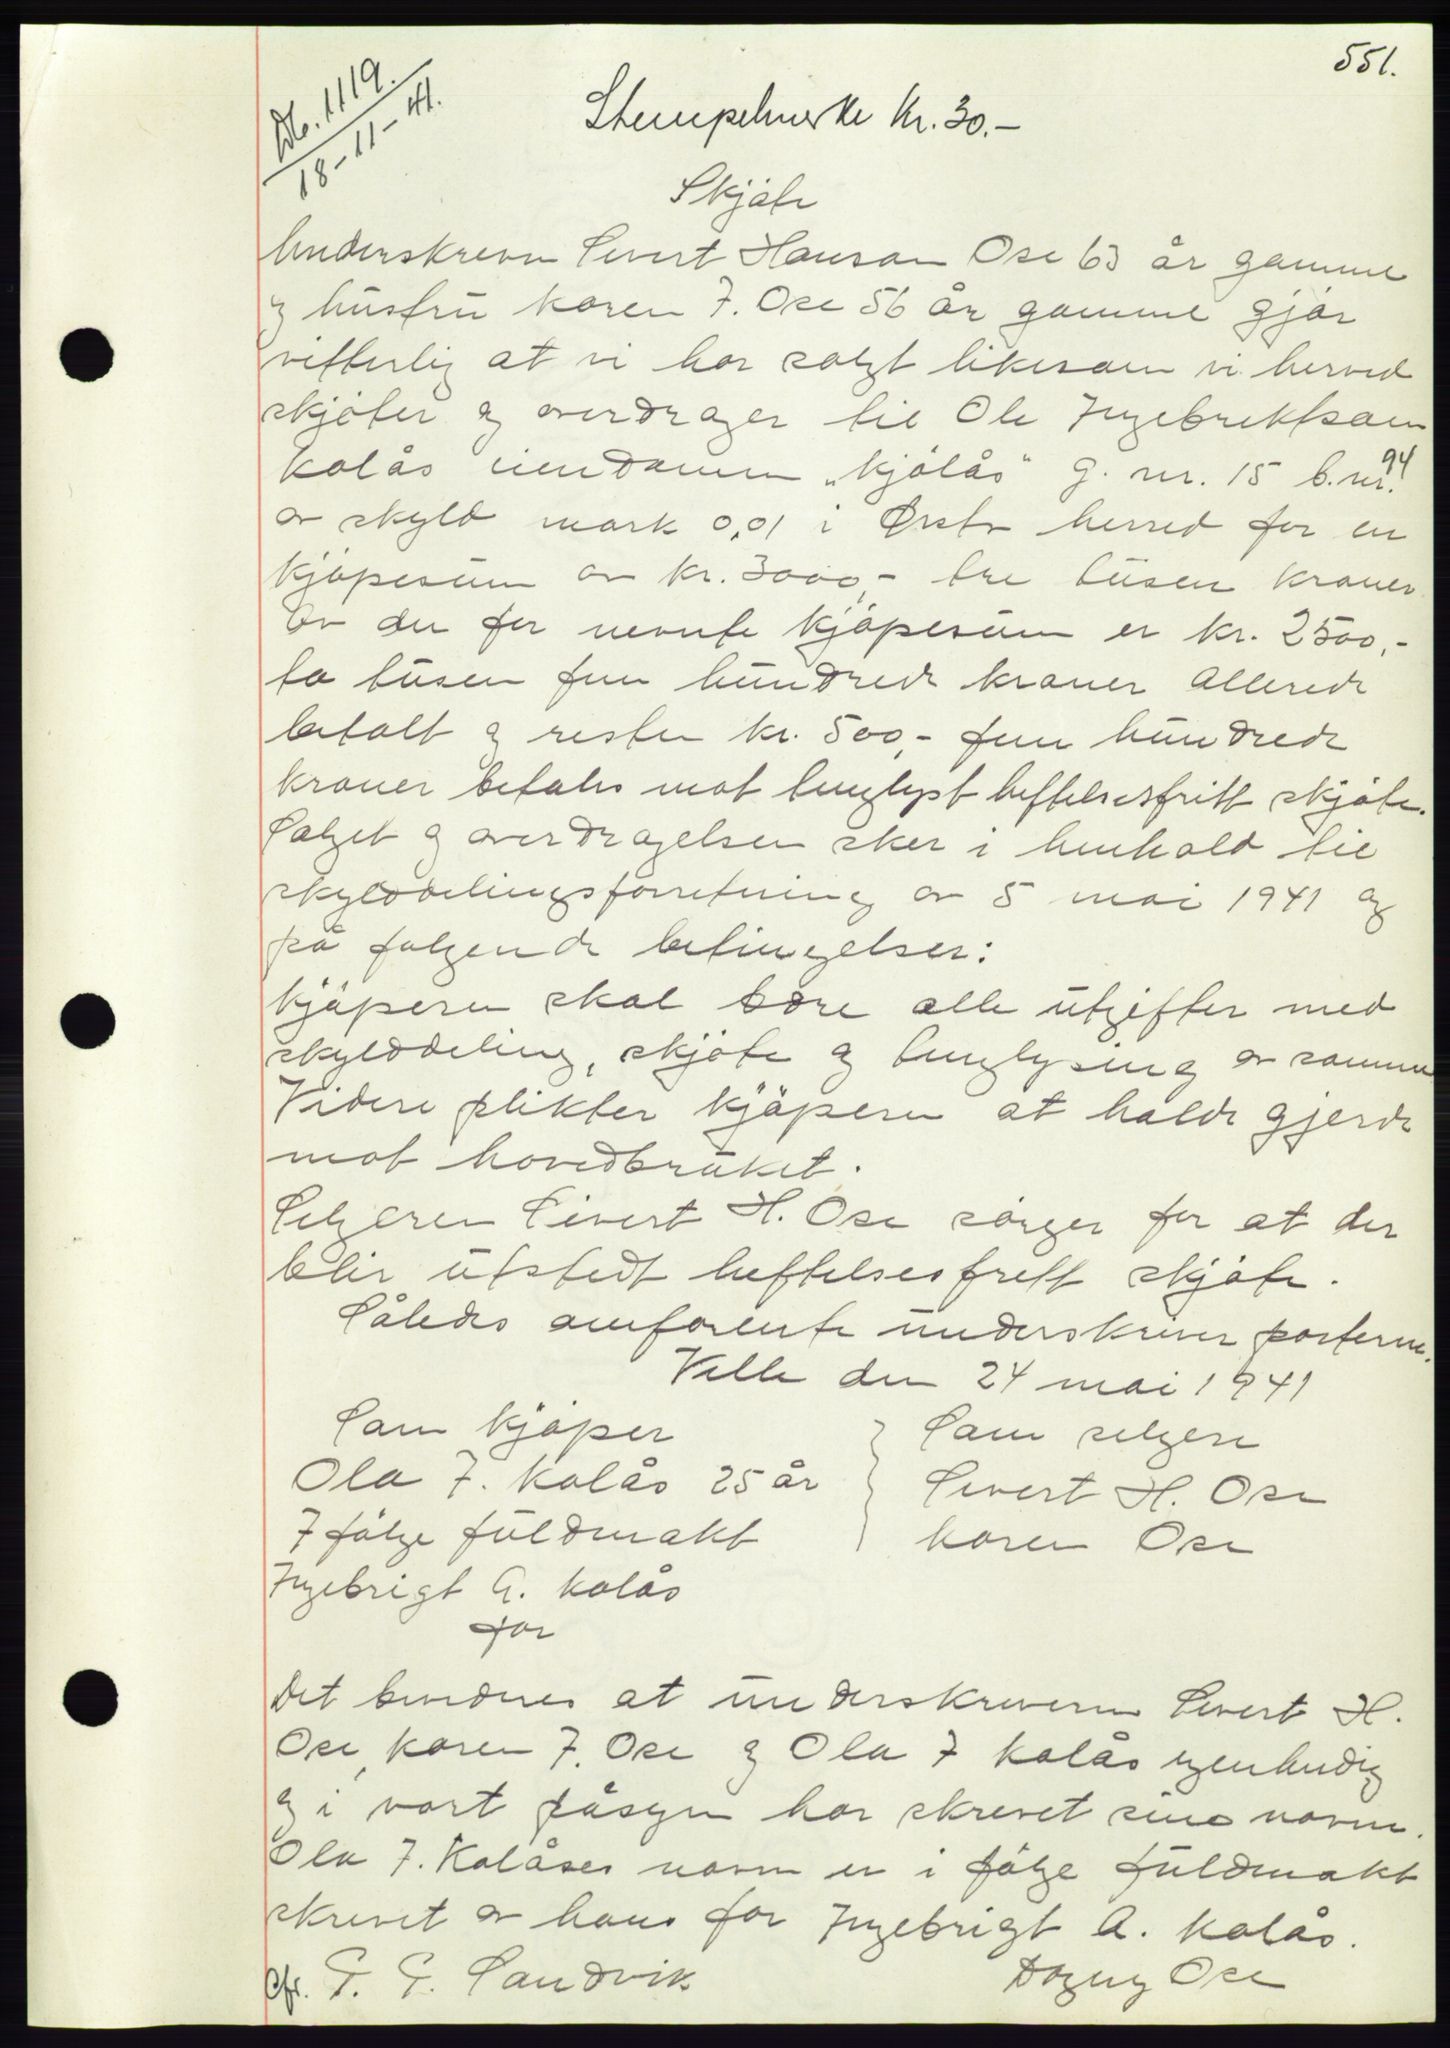 551.
Db. 1119.
18-11-41.
Stempelmerke Kr. 30.-
Skjøte
Underskrevne Sivert Hansen Ose 63 år gamme
og hustru Karen I. Ose 56 år gamme gjør
vitterlig at vi har solgt likesom vi herved
skjøter og overdrager til Ole Ingebriktsen
Kolås eiendommen „Kjølås" g. nr. 15 b.nr. 94
av skyld mark 0,01 i Ørsta herred for en
kjøpesum av kr. 3000,- tre tusen kroner
Av den før nevnte kjøpesum er kr. 2500,-
to tusen fem hundrede kroner allerede
betalt og resten kr. 500,- fem hundrede
kroner betales mot tinglyst heftelsesfritt skjøte.
Salget og overdragelsen sker i henhold til
skylddelingsforretning av 5 mai 1941 og
på følgende betingelser:
Kjøperen skal bære alle utgifter med
skylddeling, skjøte og tinglysing av samme
Videre plikter kjøperen at holde gjerde
mot hovedbruket.
Selgeren Sivert H. Ose sørger for at der
blir utstedt heftelsesfritt skjøte.
Således omforente underskriver parterne.
Velle den 24 mai 1941
Som kjøper
Ola I. Kolås 25 år
I følge fuldmakt
Ingebrigt A. Kolås
far
Som selgere
Sivert H. Ose
Karen Ose
Det bevidnes at underskriverne Sivert H.
Ose, Karen I. Ose og Ola I Kolås egenhendig
og i vort påsyn har skrevet sine navne.
Ola I. Kolåses navn er i følge fuldmakt
skrevet av hans far Ingebrigt A. Kolås.
Cfr. G. G. Sandvik
Dagny Ose